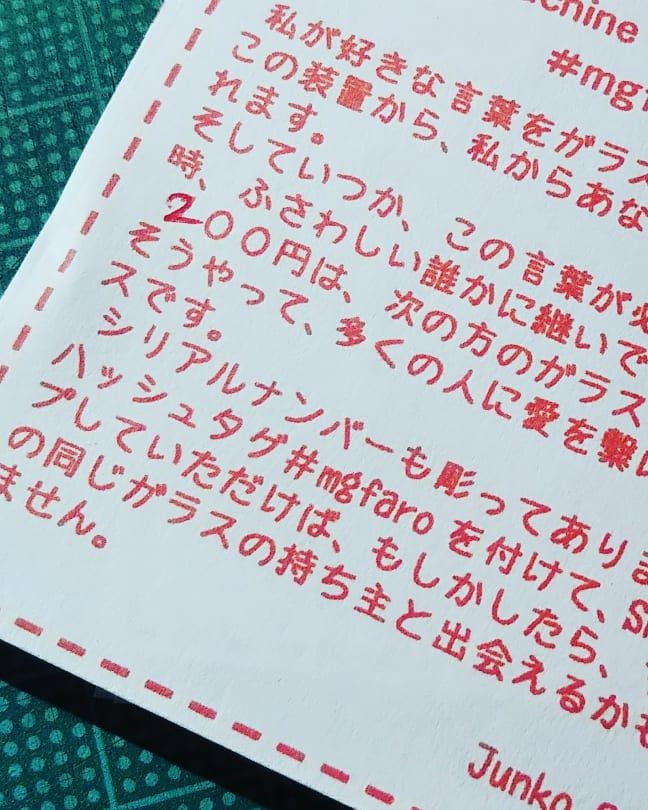 chine
#mgf
私が好きな言葉をガラス
この装置から、私からあな
れます。
そしていつか、この言葉が必
時、ふさわしい誰かに継いで
200円は、次の方のガラス
そうやって、多くの人に愛を繋げ
スです。
シリアルナンバーも彫ってありま
ハッシュタグ#mgfaroを付けて、SN
プしていただけば、もしかしたら、
の同じガラスの持ち主と出会えるかも
ません。
Junko